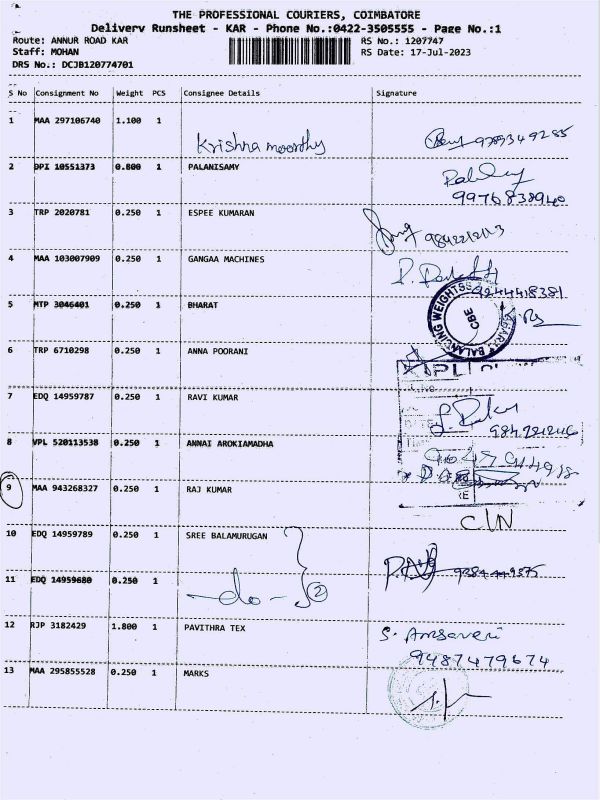 THE PROFESSIONAL COURIERS, COIMBATORE
Delivery Runsheet - KAR - Phone No.:0422-3505555 - Page No.:1
Route: ANNUR ROAD KAR RS No.: 1207747
Staff: MOHAN RS Date: 17-Jul-2023
DRS No.: DCJB120774701
S No Consignment No Weight PCS Consignee Details Signature
1 MAA 297106740 1.100 1
Krishna moorthy 9789349285
2 DPI 10551373 0.800 1 PALANISAMY
9976838940
3 TRP 2020781 0.250 1 ESPEE KUMARAN
4 MAA 103007909 0.250 1 GANGAA MACHINES
9944418381
5 MTP 3046401 0.250 1 BHARAT
BALANCING WEIGHTS
CBE
6 TRP 6710298 0.250 1 ANNA POORANI
7 EDQ 14959787 0.250 1 RAVI KUMAR
8 VPL 520113538 0.250 1 ANNAI AROKIAMADHA
9 MAA 943268327 0.250 1 RAJ KUMAR
C/N
10 EDQ 14959789 0.250 1 SREE BALAMURUGAN
11 EDQ 14959680 0.250 1
-do- 2
12 RJP 3182429 1.800 1 PAVITHRA TEX
9487479674
13 MAA 295855528 0.250 1 MARKS